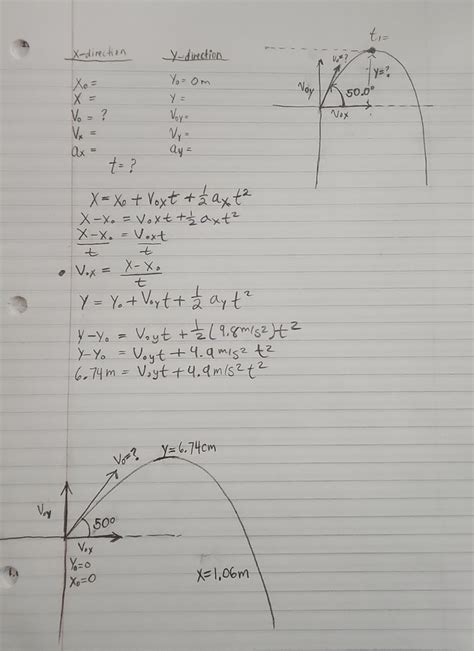 X-direction Y-direction
X₀ = Y₀ = 0m
X = Y =
V₀ = ? V₀y =
Vₓ = Vy =
aₓ = ay =
t = ?
t₁ =
V₀ = ?
Y = ?
V₀y
50.0°
V₀x
X = X₀ + V₀xt + ½ aₓt²
X - X₀ = V₀xt + ½ aₓt²
X - X₀ = V₀xt
t t
• V₀x = X - X₀
t
Y = Y₀ + V₀yt + ½ ayt²
Y - Y₀ = V₀yt + ½ (9.8m/s²)t²
Y - Y₀ = V₀yt + 4.9m/s² t²
6.74m = V₀yt + 4.9m/s² t²
Y = 6.74cm
V₀ = ?
V₀y
50°
V₀x
Y₀ = 0
X₀ = 0
X = 1.06m